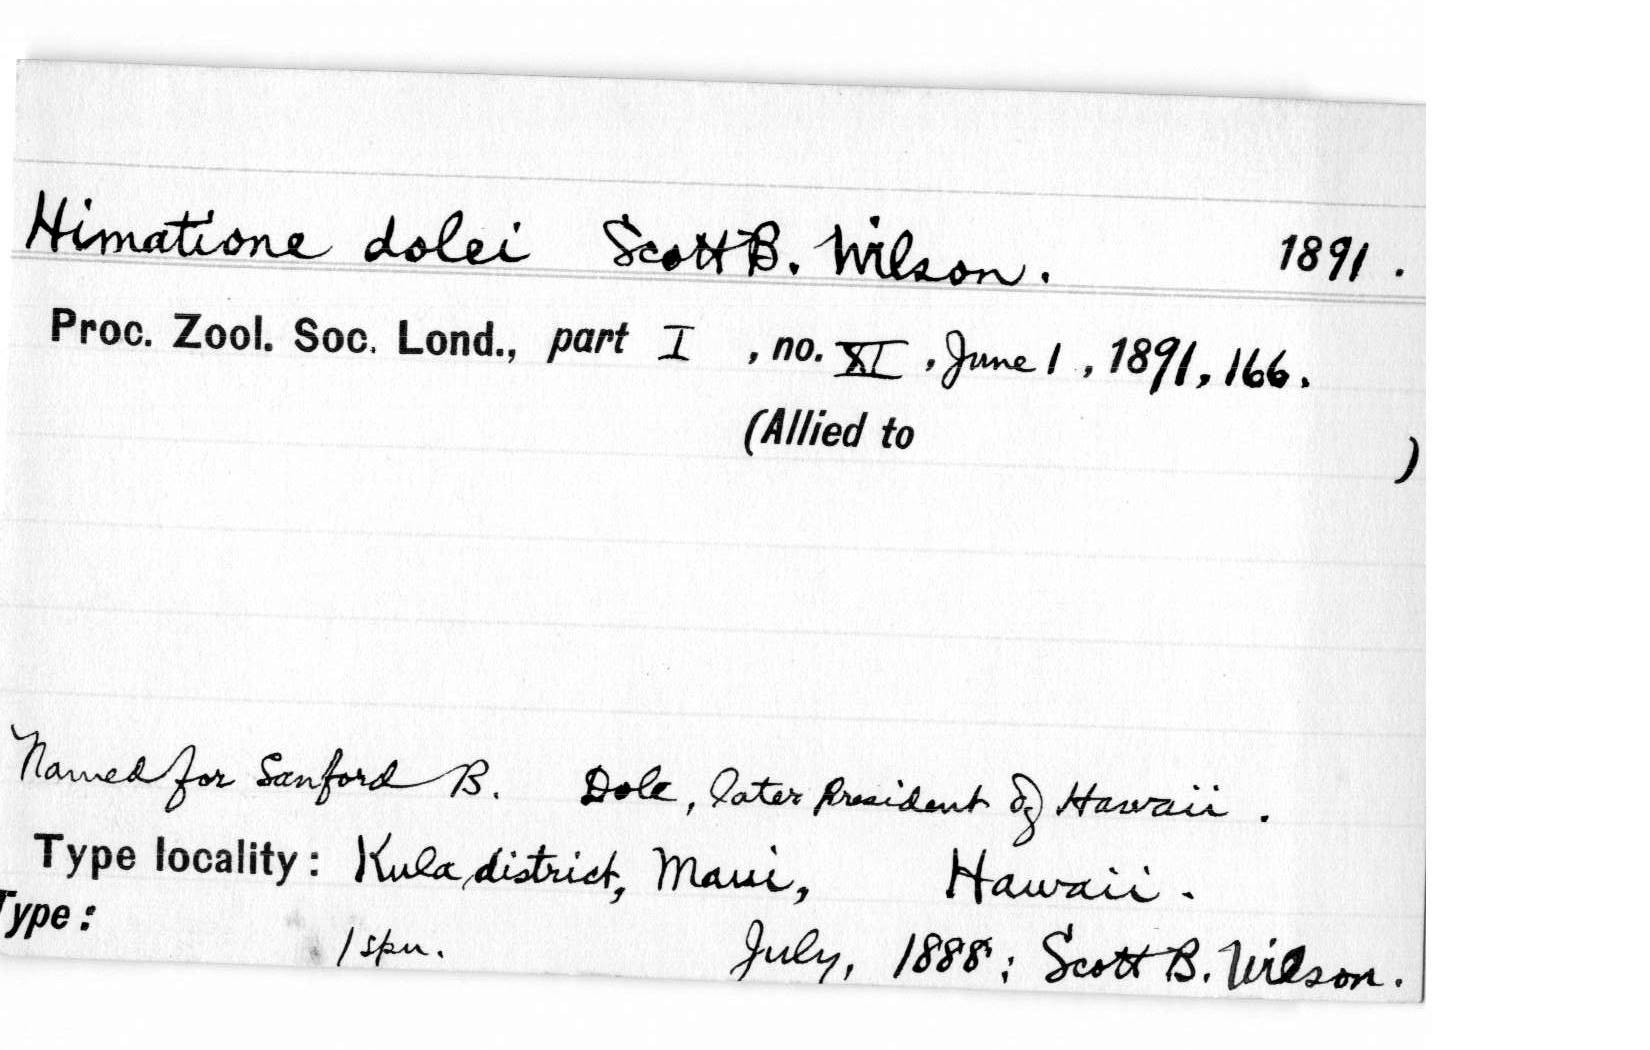 Himatione dolei Scott B. Wilson. 1891.
Proc. Zool. Soc. Lond., part I, no. XI, June 1, 1891, 166.
(Allied to )
Named for Sanford B. Dole, later President of Hawaii.
Type locality: Kula district, Maui, Hawaii.
Type:
1 spn. July, 1888; Scott B. Wilson.